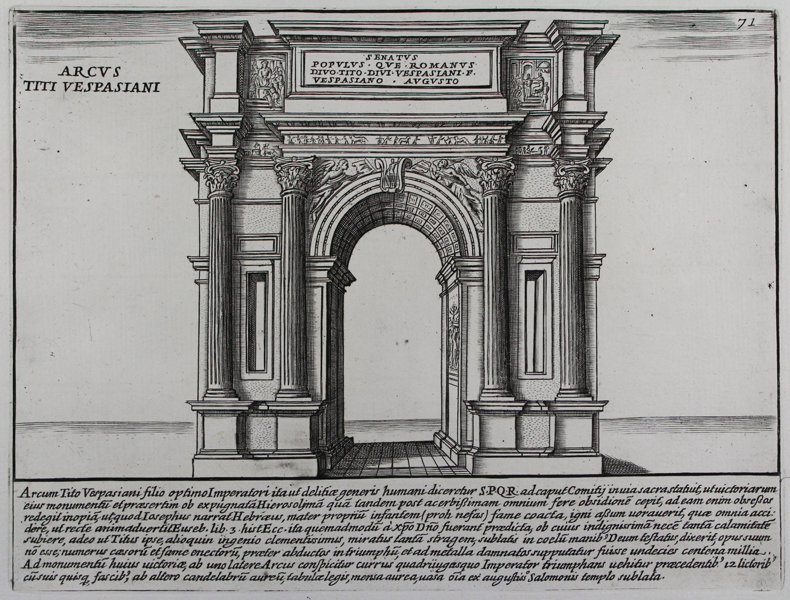 71
ARCVS
TITI VESPASIANI
SENATVS
POPVLVS · QVE · ROMANVS
DIVO · TITO · DIVI · VESPASIANI · F ·
VESPASIANO · AVGVSTO
Arcum Tito Vespasiani filio optimo Imperatori ita ut delitiæ generis humani diceretur S·P·Q·R· ad caput Comitij in uia sacra statuit, ut uictoriarum
eius monumentū et præsertim ob expugnatā Hierosolȳmā quā tandem post acerbissimam omnium fere obsidionē cepit, ad eam enim obsessos
redegit inopiā, ut quod Iosephus narrat Hebræus, mater propriū infantem (proh nefas) fame coacta, igni assum uorauerit, quæ omnia acci-
dere, ut recte animaduertit Euseb. lib. 3 hist. Ecc. ita quemadmodū a Xpō Dnō fuerant prædicta, ob cuius indignissimā necē tantā calamitatē
subiere, adeo ut Titus ipse, alioquin ingenio clementissimus, miratus tantā stragem, sublatis in coelū manib⁹ Deum testatus, dixerit, opus suum
nō esse; numerus cæsorū et fame enectorū, præter abductos in triumphū, et ad metalla damnatos supputatur fuisse undecies centena millia.
Ad monumentū huius uictoriæ, ab uno latere Arcus conspicitur currus quadriiugus quo Imperator triumphans uehitur præcedentib⁹ 12 lictorib⁹
cū suis quisq, fascib⁹, ab altero candelabrū aureū, tabulæ legis, mensa aurea, uasa oīa ex augustis⁰ Salomonis templo sublata.